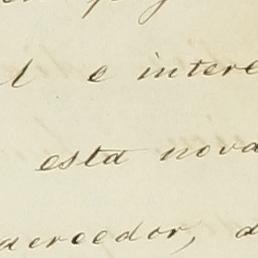 l e intere
esta nova
acreedor, d